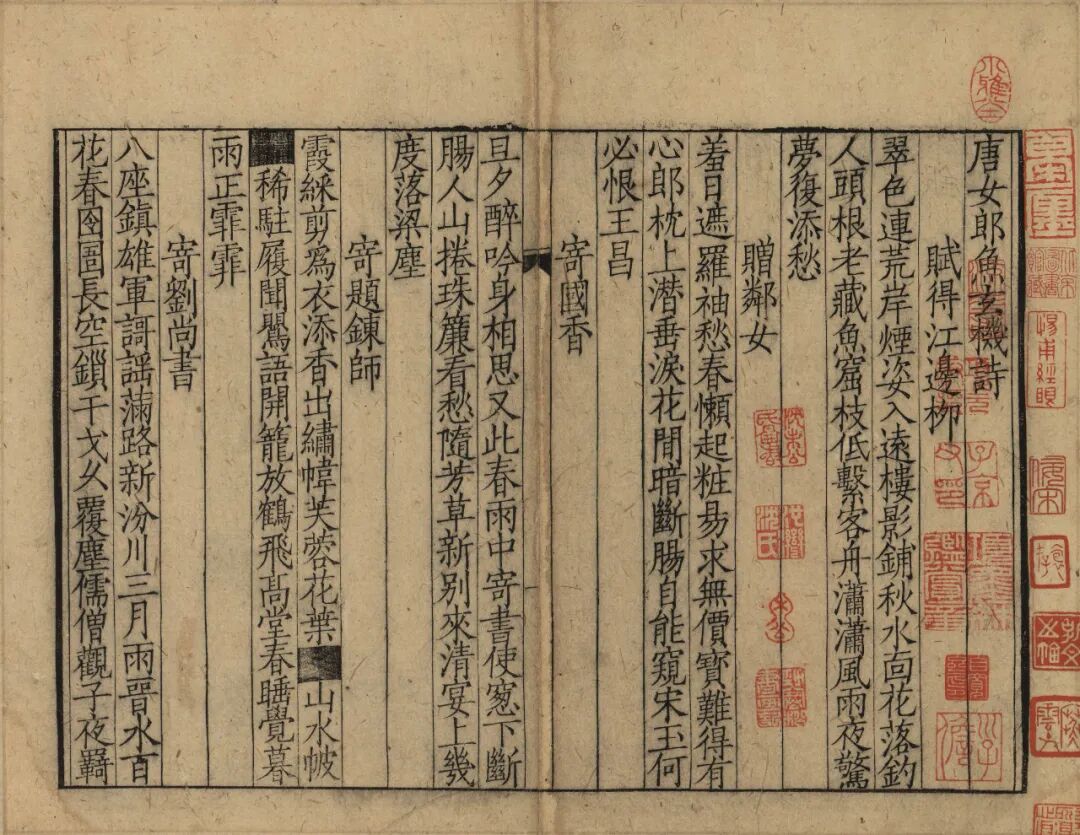 唐女郎魚玄機詩
賦得江邊柳
翠色連荒岸煙姿入遠樓影鋪秋水面花落釣
人頭根老藏魚窟枝低繫客舟瀟瀟風雨夜驚
夢復添愁
贈鄰女
羞日遮羅袖愁春懶起粧易求無價寶難得有
心郎枕上潛垂淚花間暗斷腸自能窺宋玉何
必恨王昌
寄國香
旦夕醉吟身相思又此春雨中寄書使窓下斷
腸人山捲珠簾看愁隨芳草新別來清宴上幾
度落梁塵
寄題鍊師
霞綵剪爲衣添香出繡幃芙蓉花葉山水帔
稀駐履聞鶯語開籠放鶴飛高堂春睡覺暮
雨正霏霏
寄劉尚書
八座鎮雄軍謌謡滿路新汾川三月雨晉水百
花春囹圄長空鎖干戈乆覆塵儒僧觀子夜羇